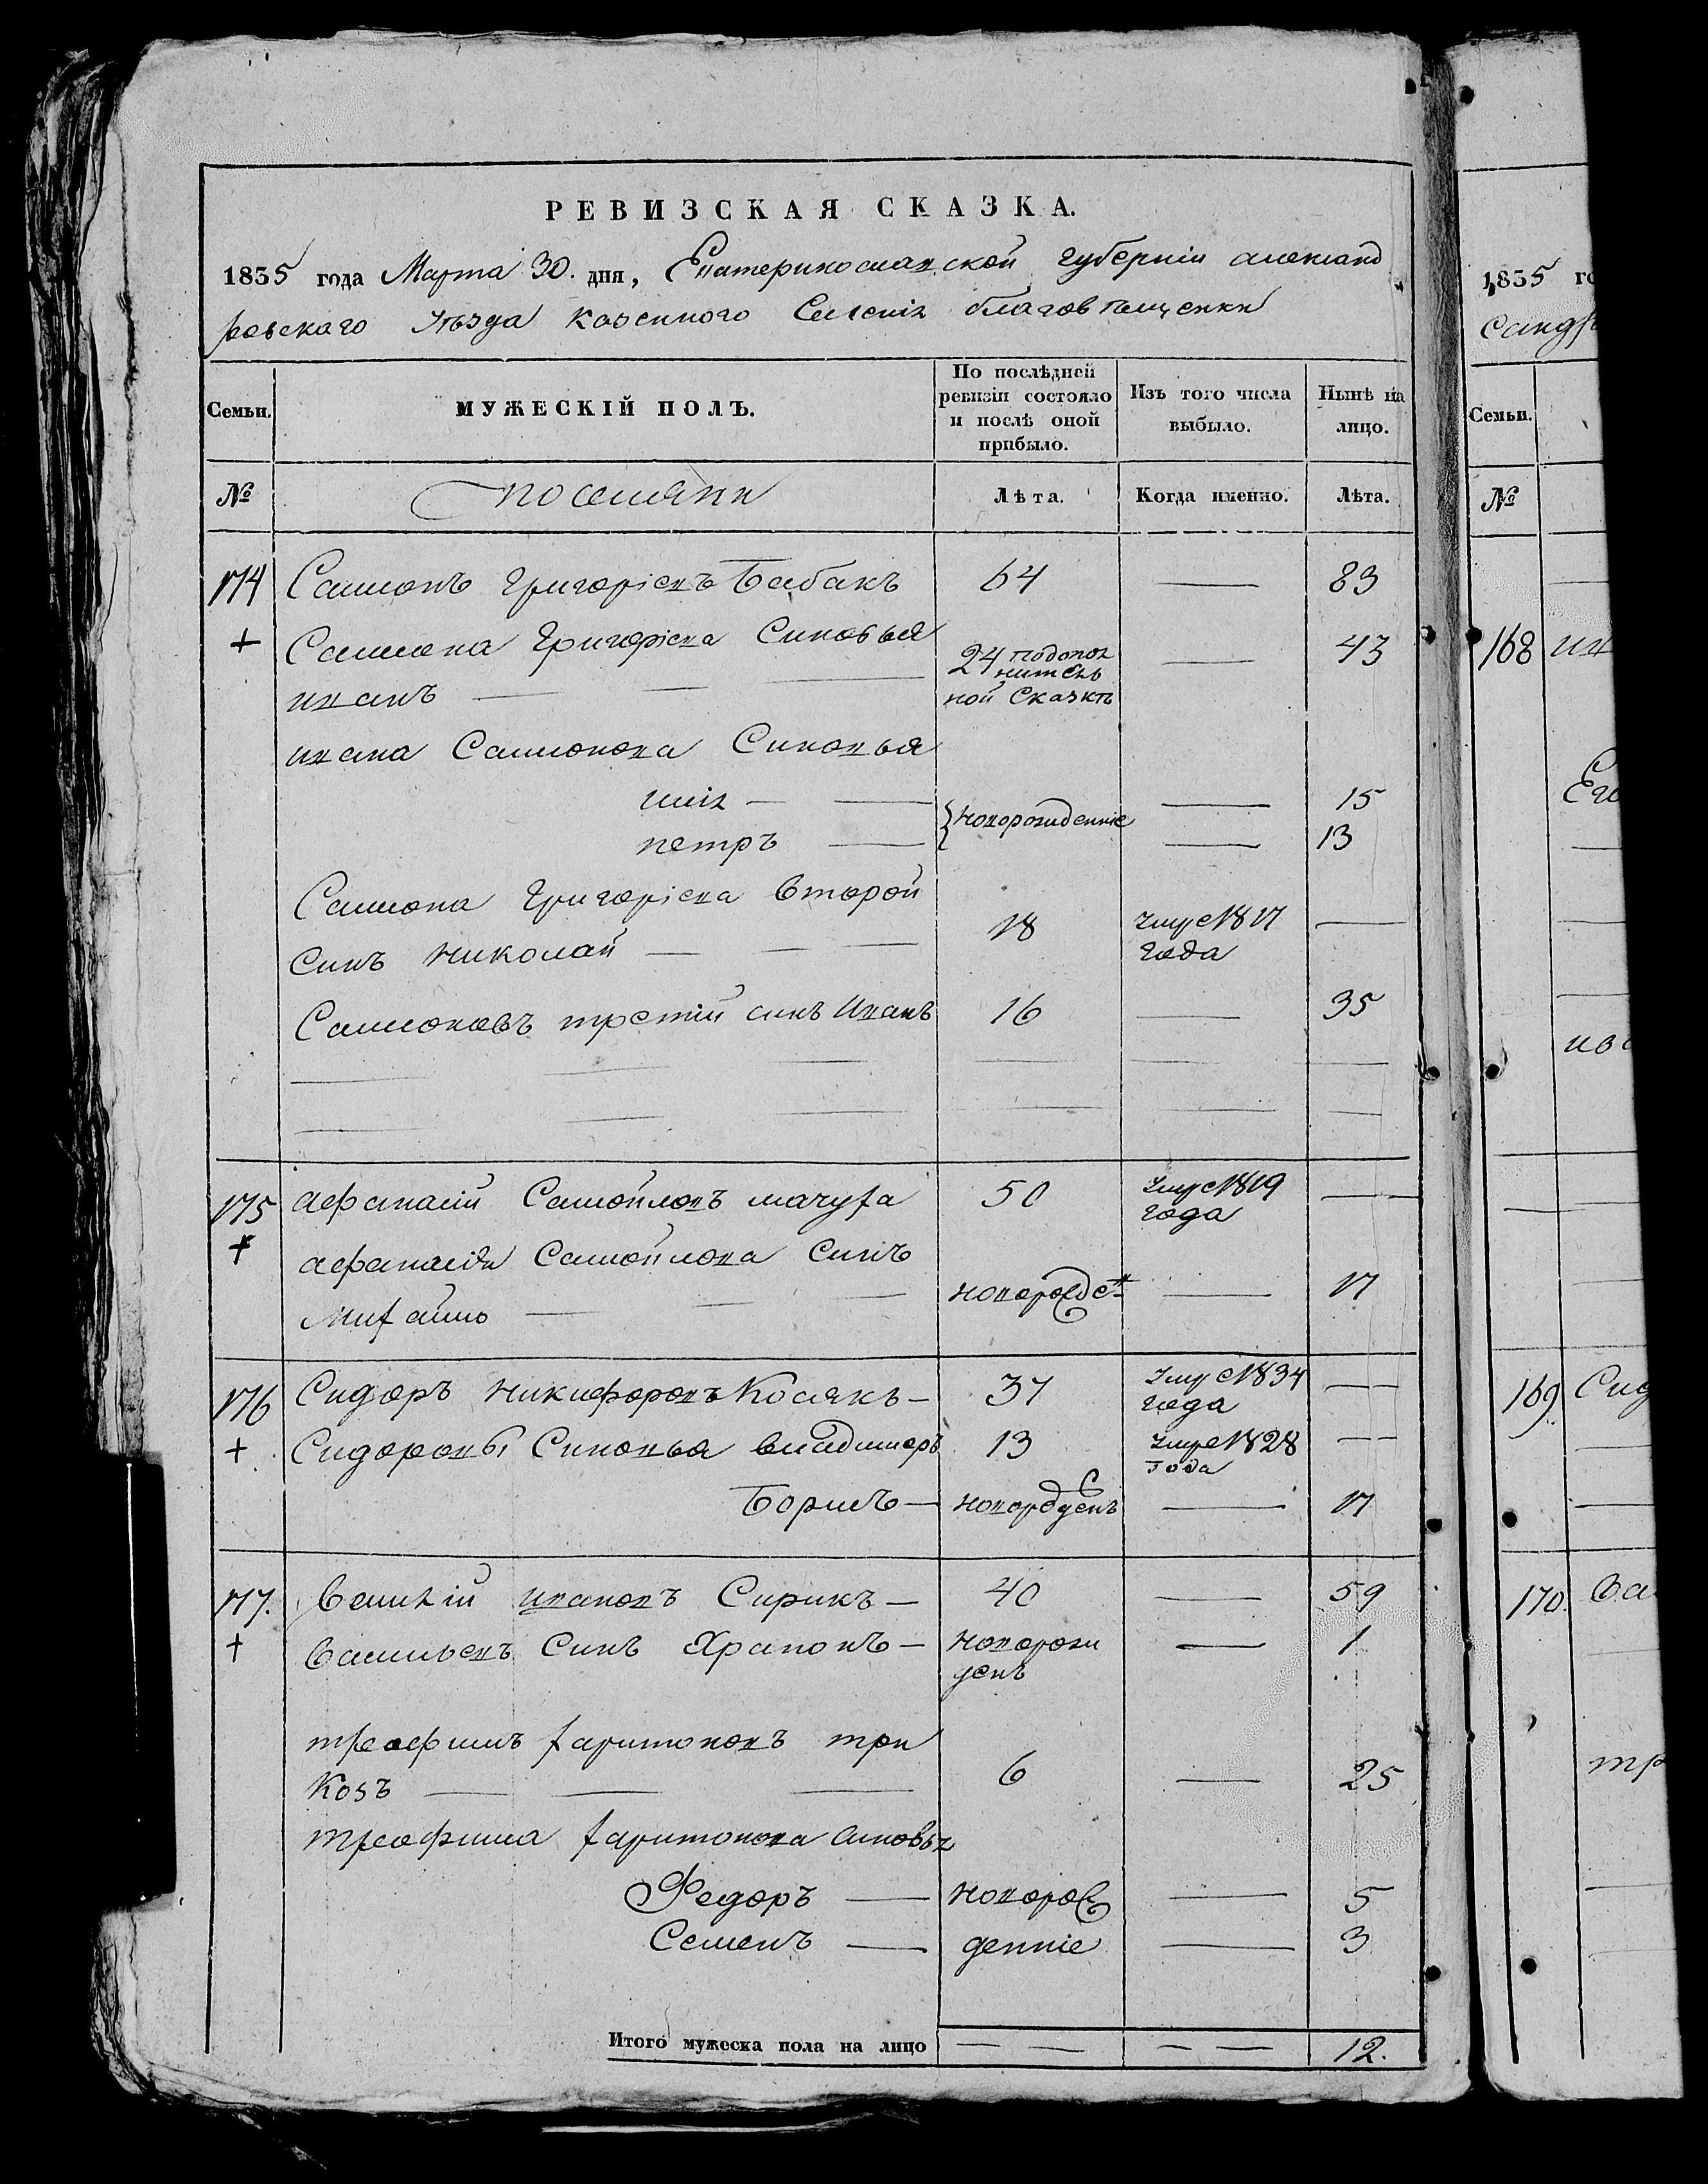 РЕВИЗСКАЯ СКАЗКА.
1835 года Марта 30. дня, Екатеринославской губерніи александ
ровскаго Уѣзда казенного Селенія благовѣщенки
Семьи.
МУЖЕСКІЙ ПОЛЪ.
По послѣдней ревизіи состояло и послѣ оной прибыло.
Изъ того числа выбыло.
Нынѣ на лицо.
№
поселяни
Лѣта.
Когда именно.
Лѣта.
174 Самсонъ григоріевъ Бабакъ 64 — 83
+ Самсона Григоріева Синовья
иванъ — — — 24 подопол нитель ной Сказкѣ — 43
ивана Самсонова Синовья
илія — — новорожденніе — 15
петръ — — 13
Самсона Григоріева второй
Синъ николай — — — 18 умре 1817 года —
Самсоновъ третій синъ Иванъ 16 — 35
175 афанасій Самойловъ мачуха 50 умре 1819 года —
+ афанасія Самойлова Синъ
михайло — — — новорожден — 17
176 Сидоръ никифоровъ Косякъ — 37 умре 1834 года —
+ Сидоровы Синовья владимеръ 13 умре 1828 года —
Борисъ — новорожденъ — 17
177. Василій ивановъ Сирикъ — 40 — 59
+ Васильевъ Синъ Храпонъ — новорож денъ — 1
трофимъ харитоновъ три
козъ — — — 6 — 25
трофима харитонова синовья
Федоръ — новорож — 5
Семенъ — денніе — 3
Итого мужеска пола на лицо — — — — 12.
1835 го
санд
Семьи.
№
168 ив
Его
169. Сид
170. Ва
тр